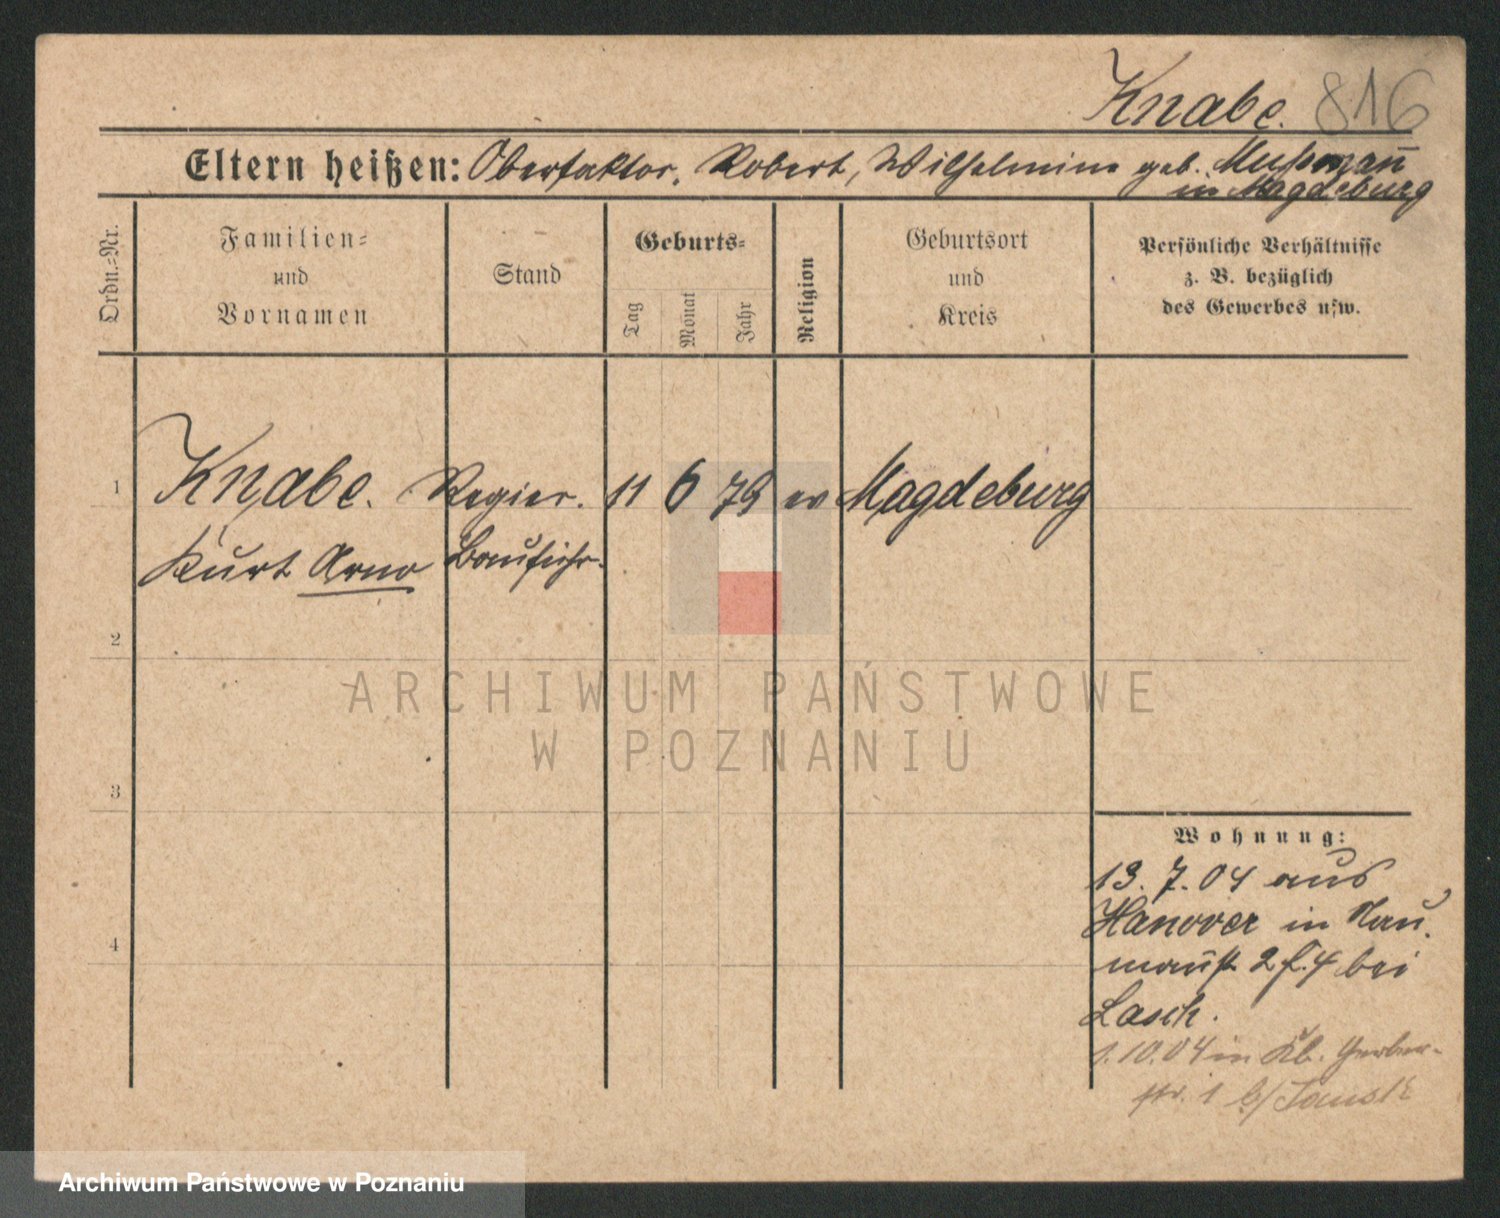 Knabe. 816
Eltern heißen: Oberfaktor, Robert, Wilhelmine geb.
in Magdeburg
Ordn.-Nr.
Familien-
und
Vornamen
Stand
Geburts-
Tag
Monat
Jahr
Religion
Geburtsort
und
Kreis
Persönliche Verhältnisse
z. B. bezüglich
des Gewerbes usw.
1 Knabe. Regier. 11 6 79 ev Magdeburg
Kurt Arno Bauführ.
2
ARCHIWUM PAŃSTWOWE
W POZNANIU
3
Wohnung:
13. 7. 04 aus
Hanover in Nau.
mannst 2 f. 4 bei
Lasch.
1.10.04 in Kl. Gerber-
str. 1 b/
4
Archiwum Państwowe w Poznaniu